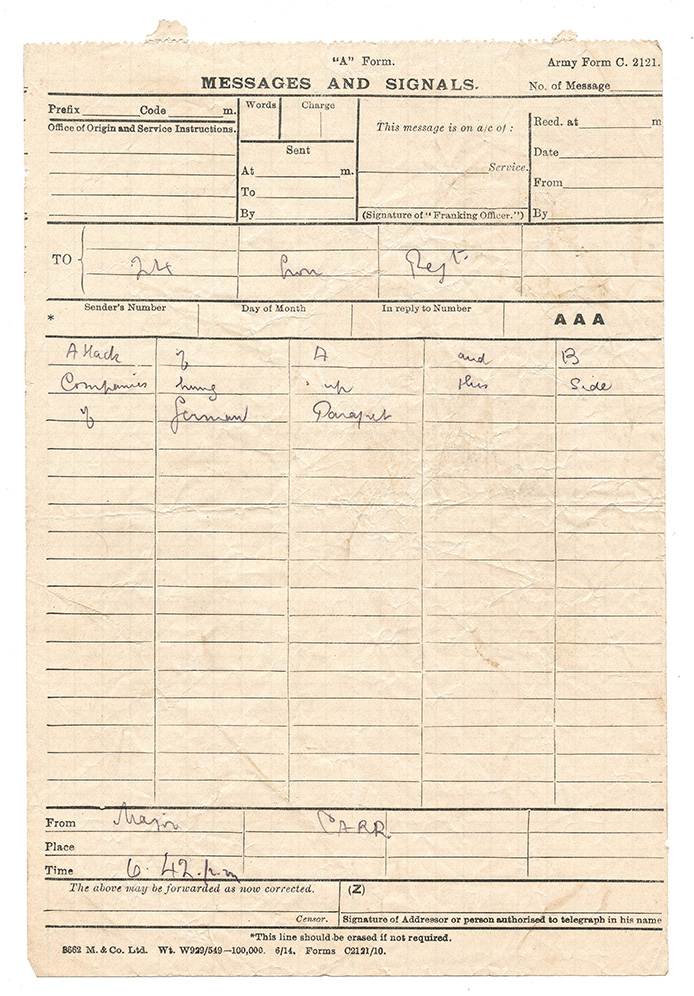 "A" Form. Army Form C. 2121.
MESSAGES AND SIGNALS. No. of Message
Prefix Code m. Words Charge This message is on a/c of : Recd. at m
Office of Origin and Service Instructions.
Sent Date
At m. Service. From
To
By (Signature of "Franking Officer.") By
TO 24 Regt.
Sender's Number Day of Month In reply to Number AAA
*
Attack of A and B
Companies hung up this side
of German Parapet
From Major CARR.
Place
Time 6.42.p.m
The above may be forwarded as now corrected. (Z)
Censor. Signature of Addressor or person authorised to telegraph in his name
*This line should be erased if not required.
8662 M. & Co. Ltd. Wt. W929/549—100,000. 6/14. Forms C2121/10.